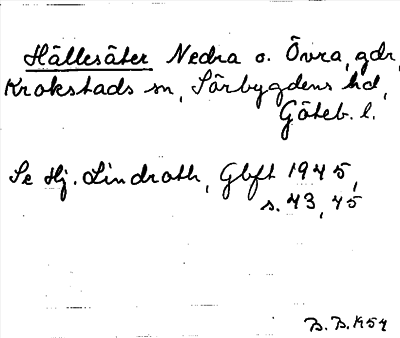 Hällesäter Nedra o. Övra, gdr,
Krokstads sn, Sörbygdens hd,
Göteb. l.
Se Hj. Lindroth, Gbft 1945,
s. 43, 45
B. B. 1954